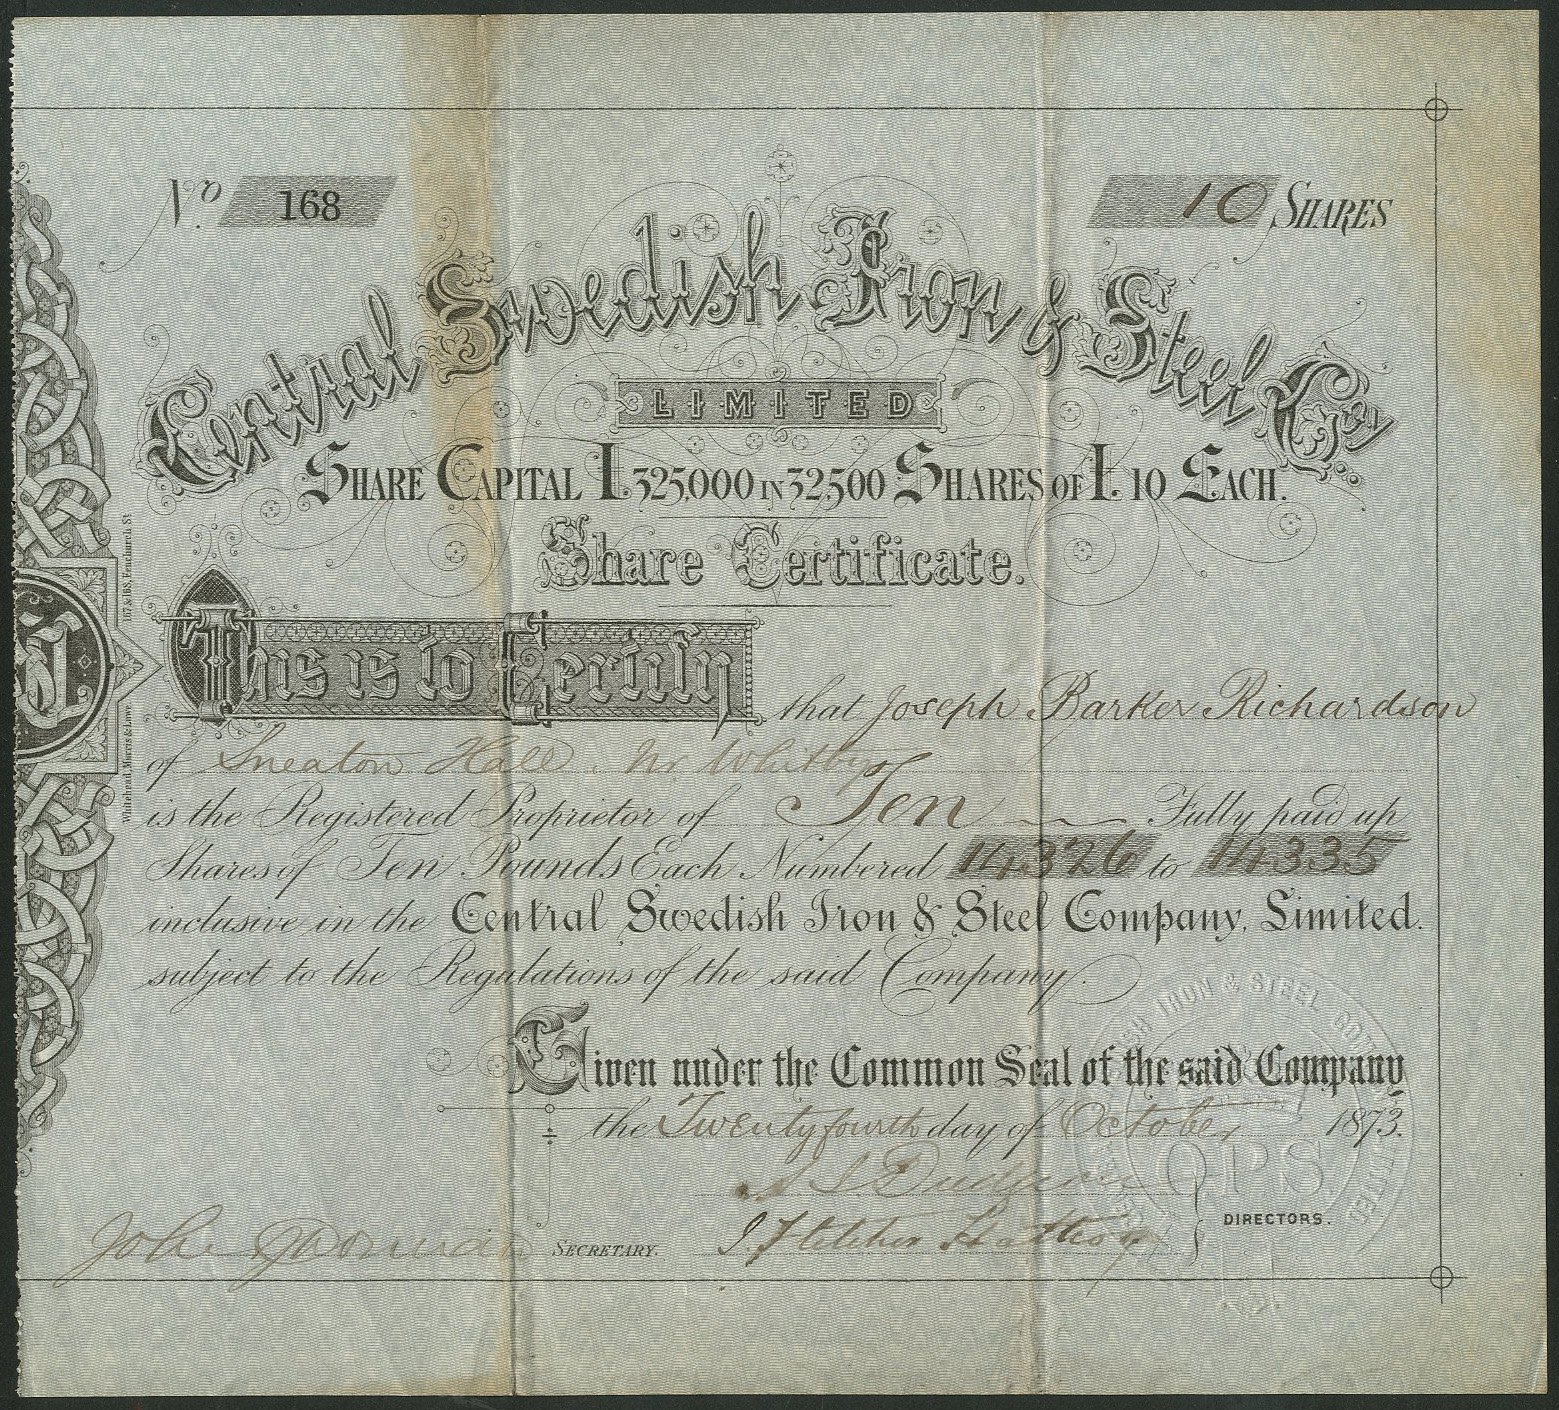 No. 168
10 SHARES
Central Swedish Iron & Steel Coy
LIMITED
SHARE CAPITAL £325,000 IN 32500 SHARES OF £10 EACH.
Share Certificate.
This is to Certify that Joseph Barker Richardson
of Sneaton Hall. Nr. Whitby
is the Registered Proprietor of Ten Fully paid up
Shares of Ten Pounds Each Numbered 14326 to 14335
inclusive in the Central Swedish Iron & Steel Company, Limited.
subject to the Regulations of the said Company.
Given under the Common Seal of the said Company
the Twenty fourth day of October 1873.
DIRECTORS.
John
SECRETARY.
Whitehead, Morris & Lowe, 167 & 168, Fenchurch St
IRON & STEEL